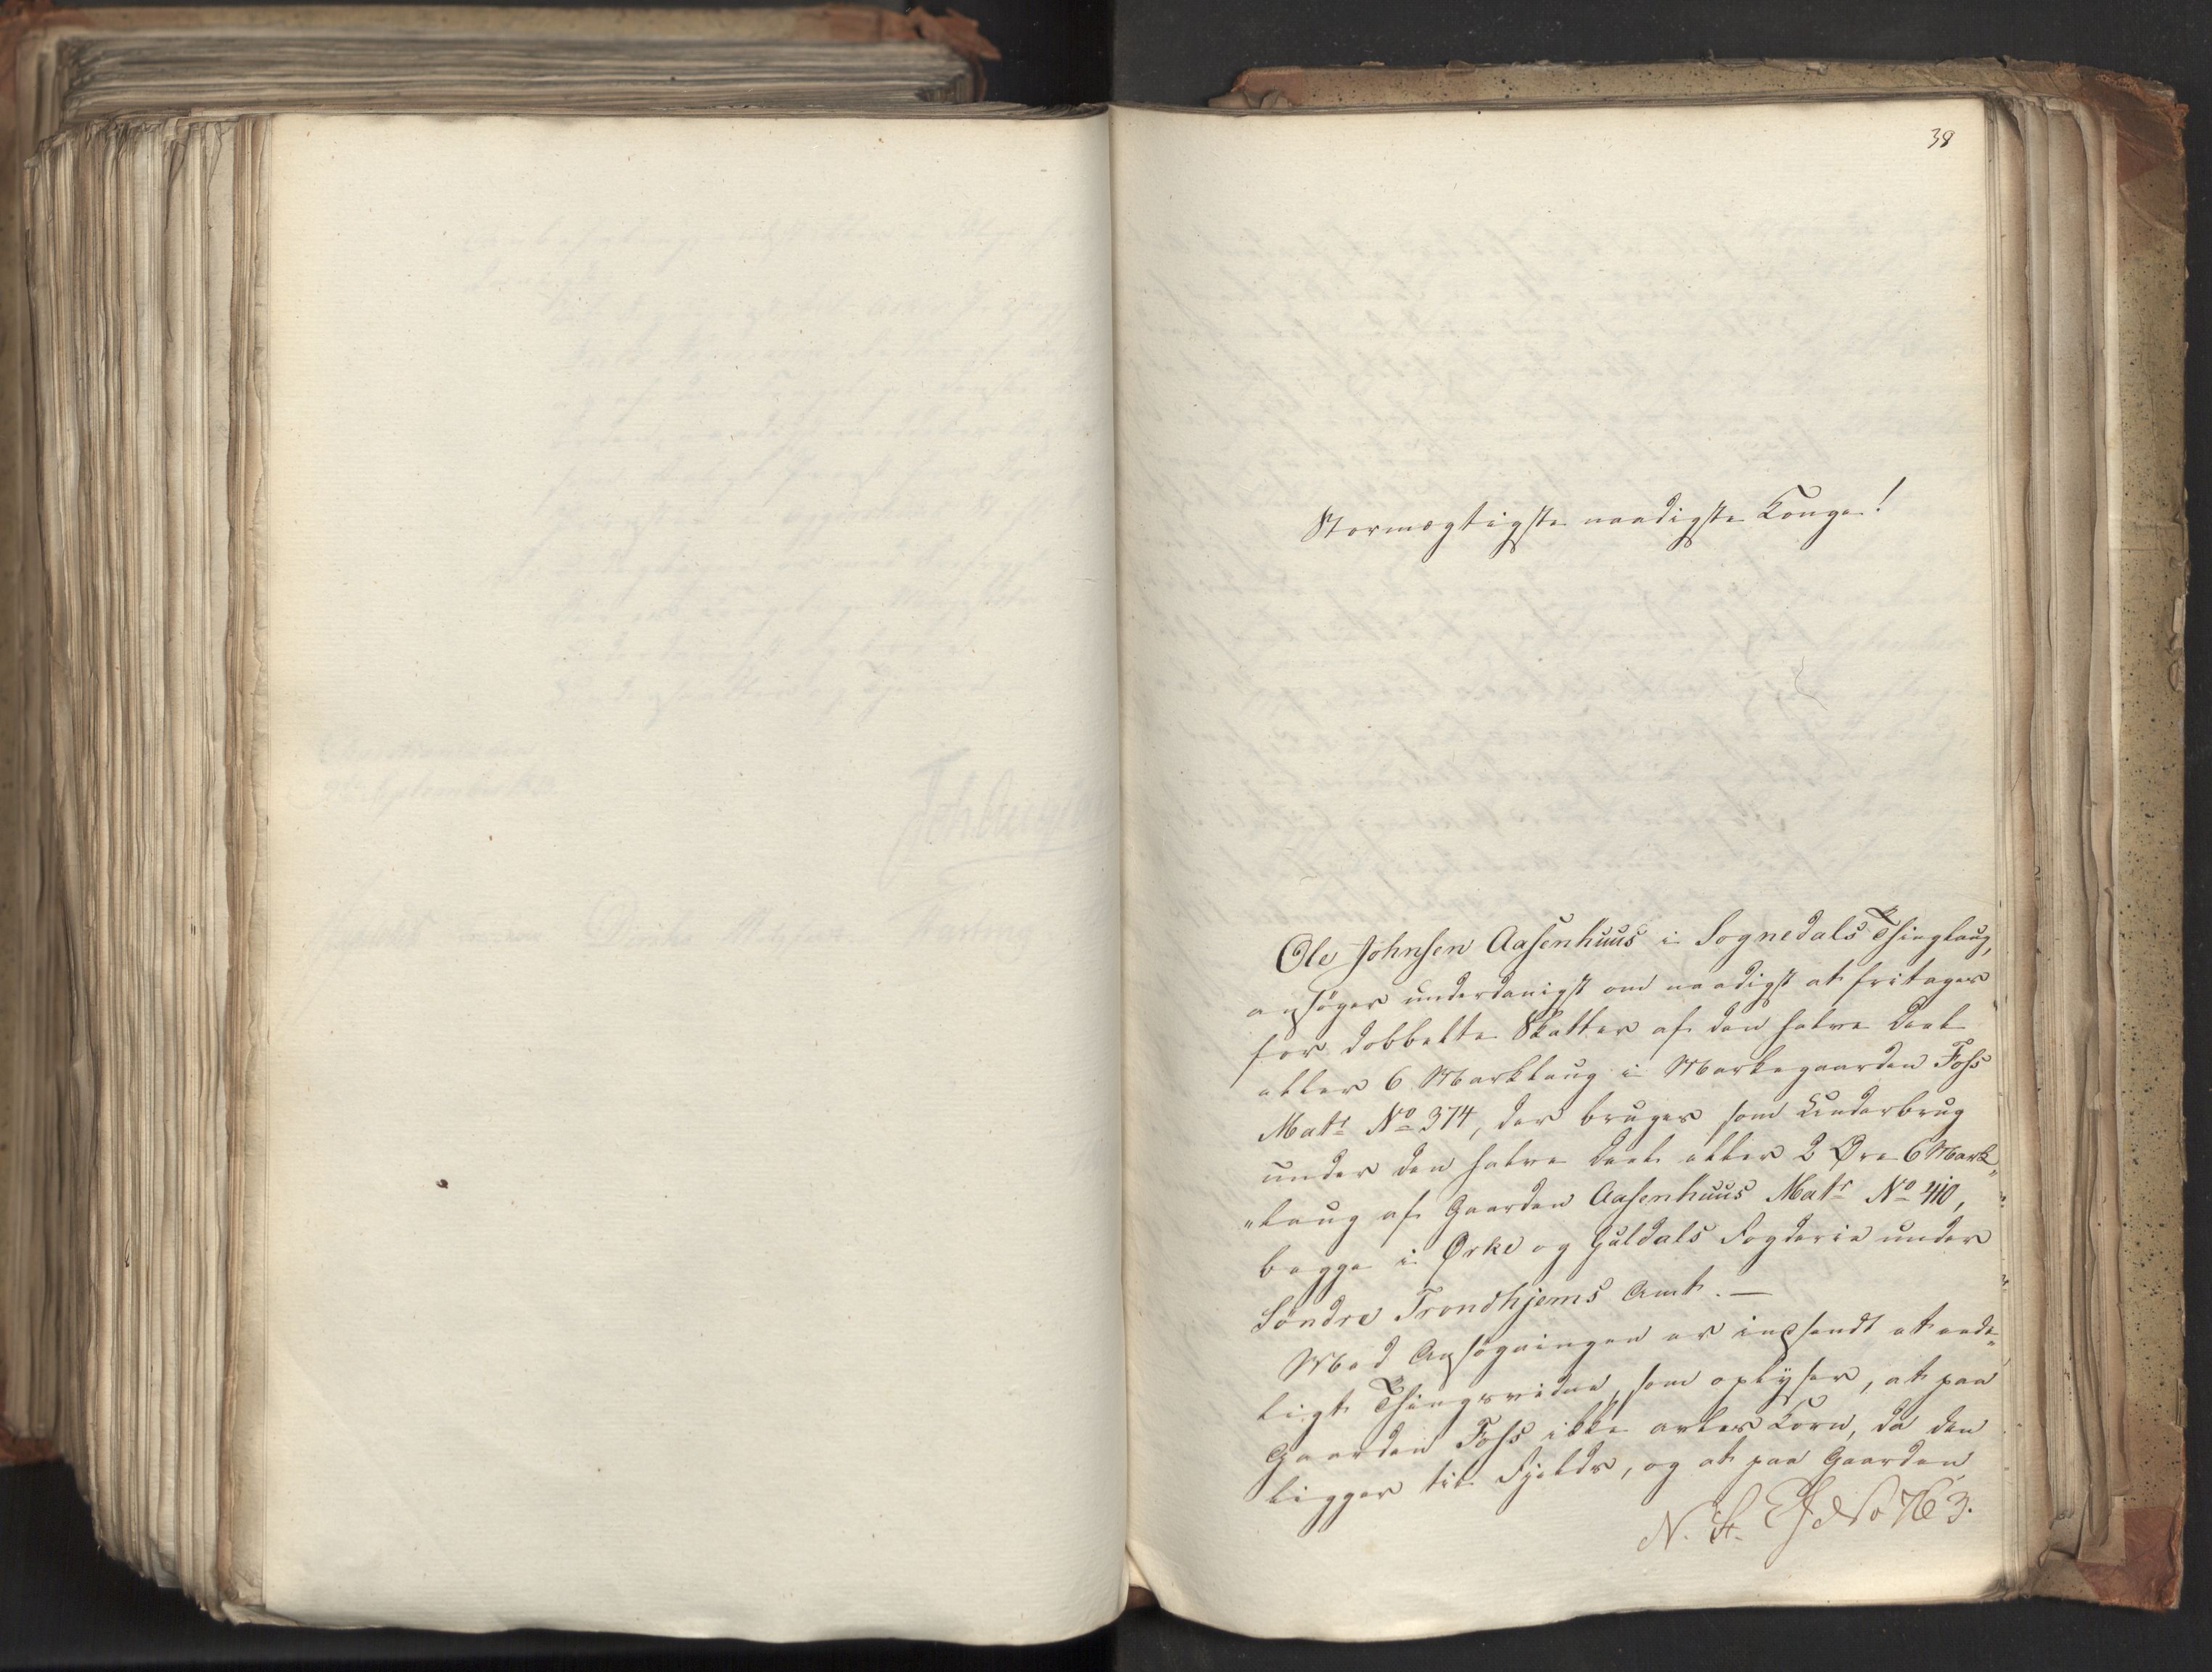 38
Stormægtigste naadigste Konge!
Ole Johnsen Aasenhuus i Sognedals Thinglaug,
ansøger underdanigst om naadigst at fritages
for dobbelte Skatter af den halve Deel
eller 6 Marklaug i Markegaarden Foss
Matr No 374, der bruges som Underbrug
under den halve Deel eller 2 Øre 6 Mark„
„laug af Gaarden Aasenhuus Matr No 410,
begge i Ørke og Guldals Fogderie under
Søndre Trondhjems Amt. —
Med Ansøgningen er indsendt et ende„
ligt Thingsvidne, som oplyser, at paa
Gaarden Foss ikke avles Korn, da den
ligger til Fjelds, og at paa Gaarden